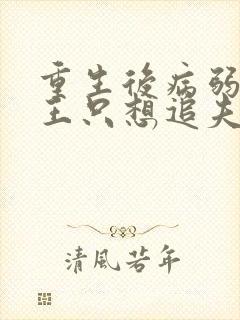 重生後病弱
王只想追夫
清風若年